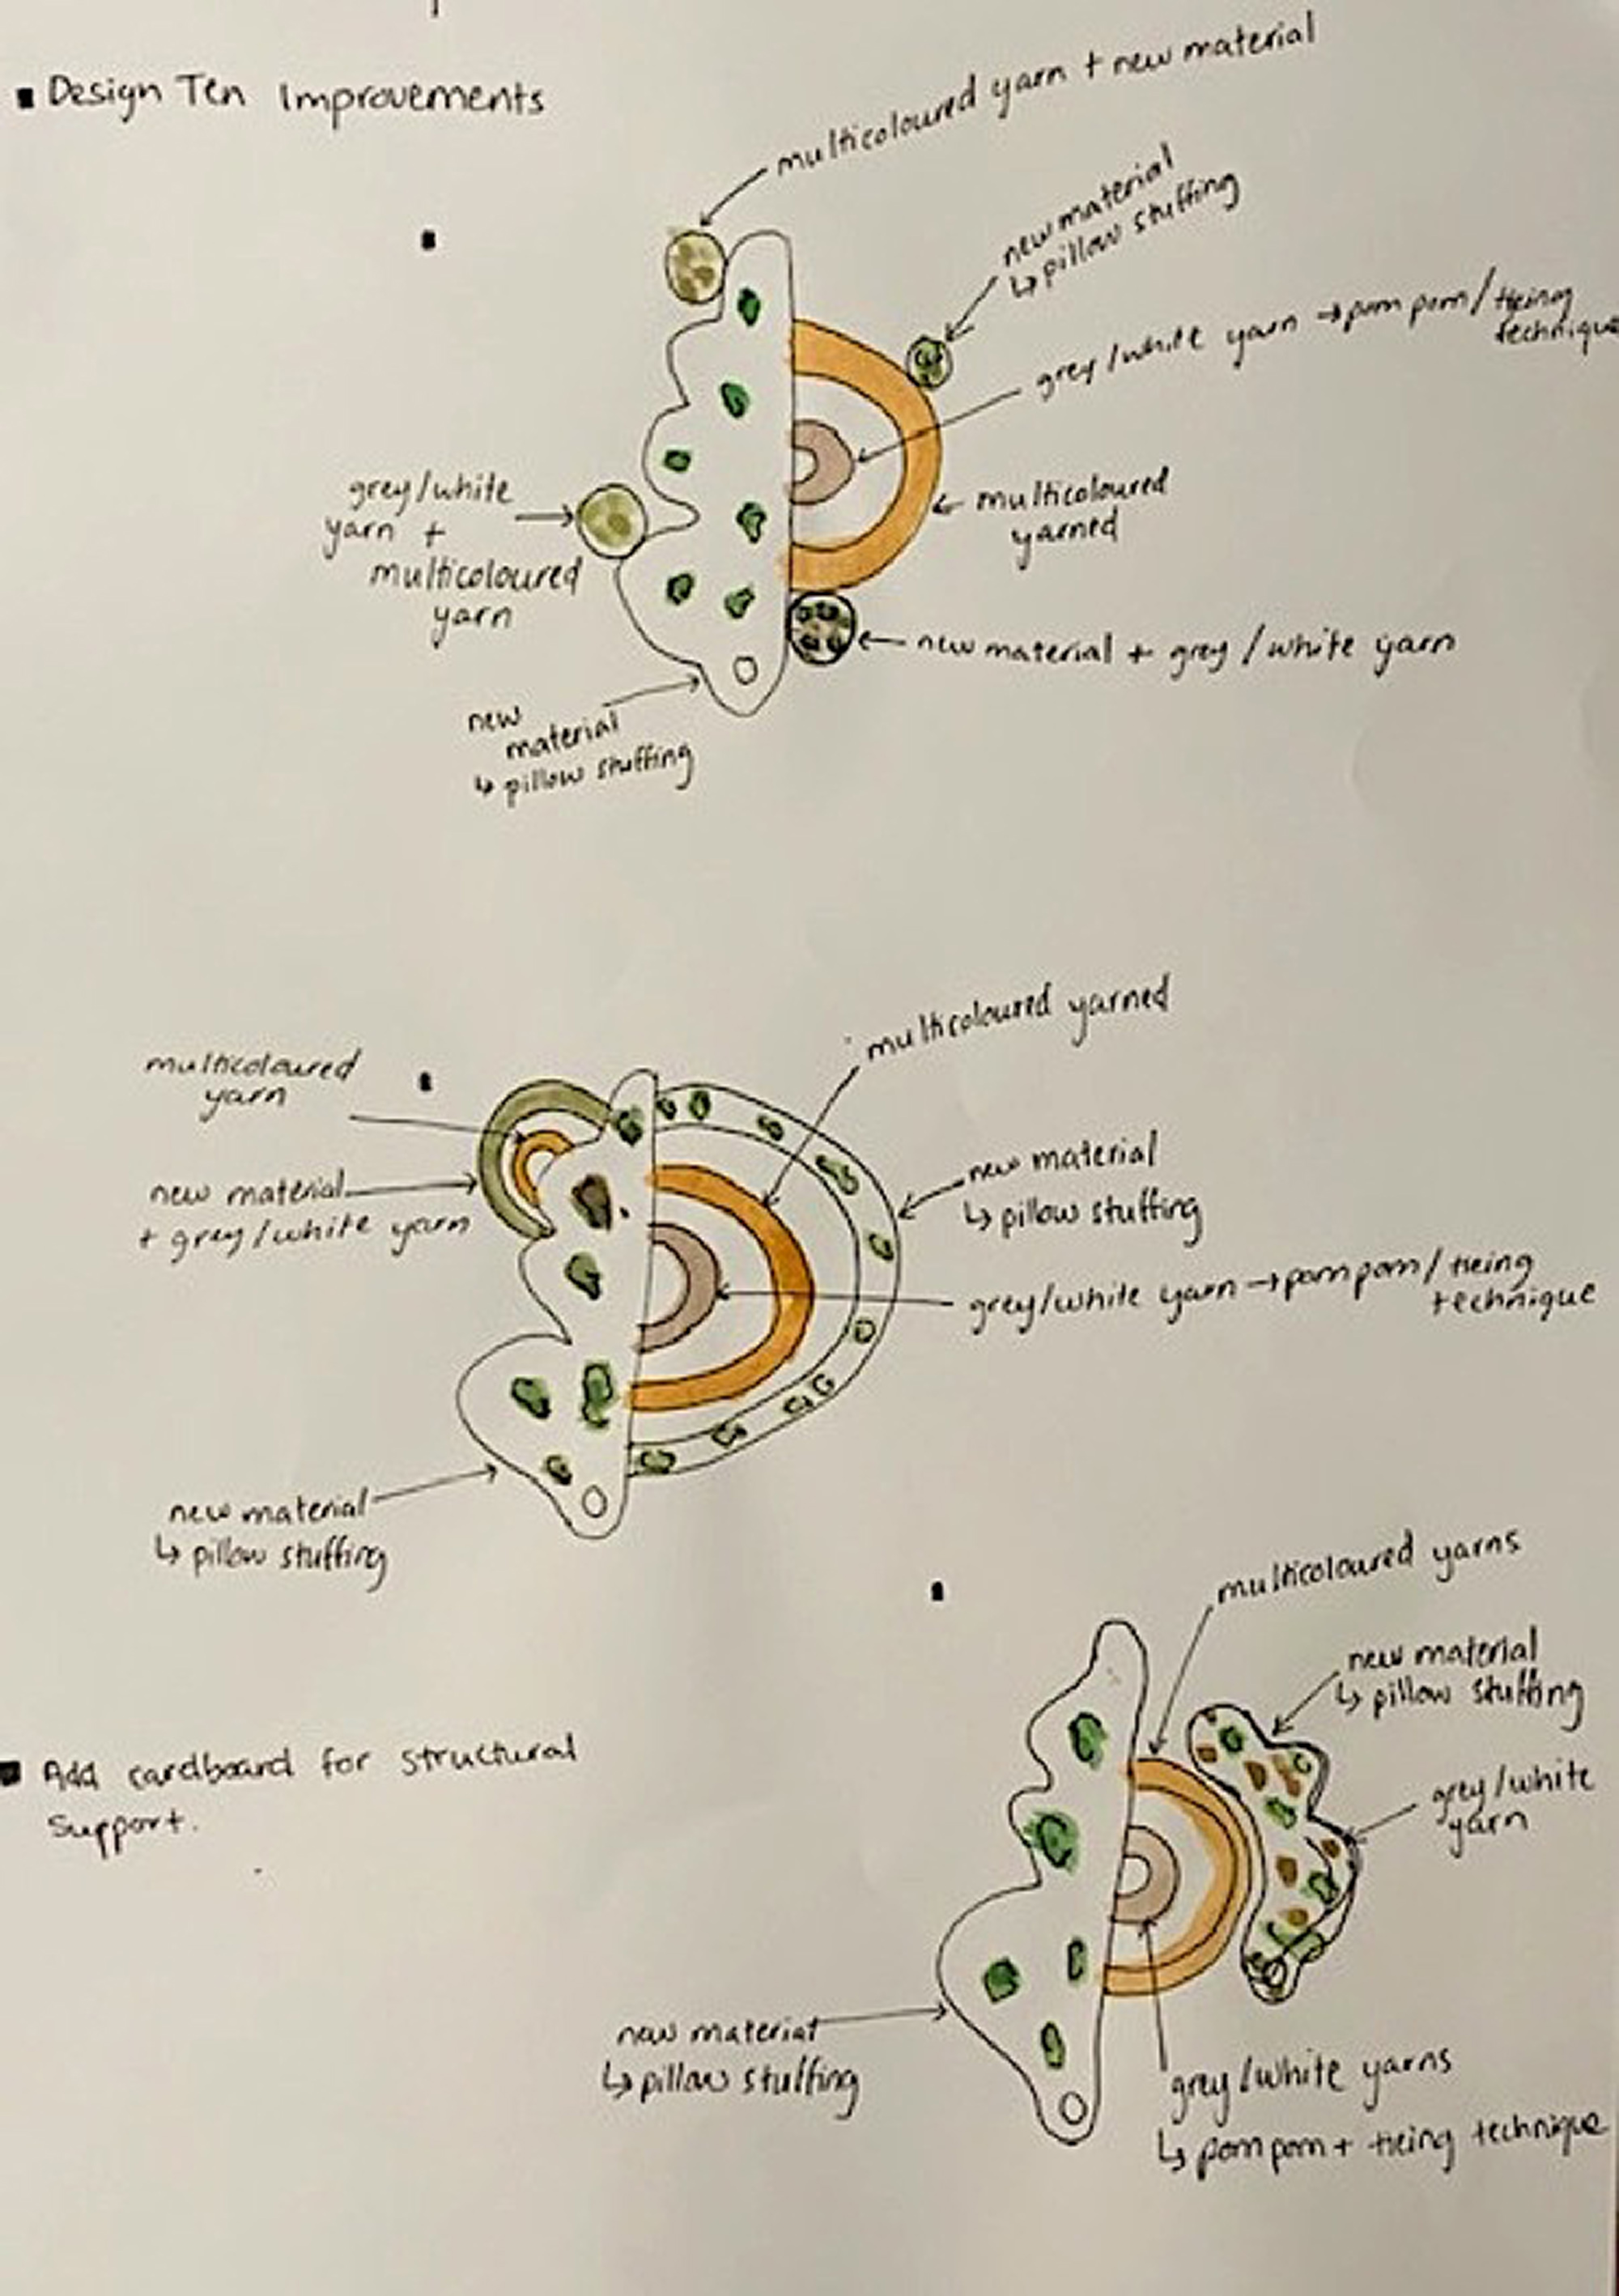 Design Ten Improvements
multicoloured yarn + new material
new material
↳ pillow stuffing
grey/white yarn → pom pom/tieing
technique
grey/white
yarn +
multicoloured
yarn
← multicoloured
yarned
new material + grey/white yarn
new
material
↳ pillow stuffing
multicoloured yarned
multicoloured
yarn
new material
+ grey/white yarn
new material
↳ pillow stuffing
grey/white yarn → pom pom/tieing
technique
new material
↳ pillow stuffing
multicoloured yarns
new material
↳ pillow stuffing
grey/white
yarn
Add cardboard for structural
support.
new material
↳ pillow stuffing
grey/white yarns
↳ pom pom + tieing technique